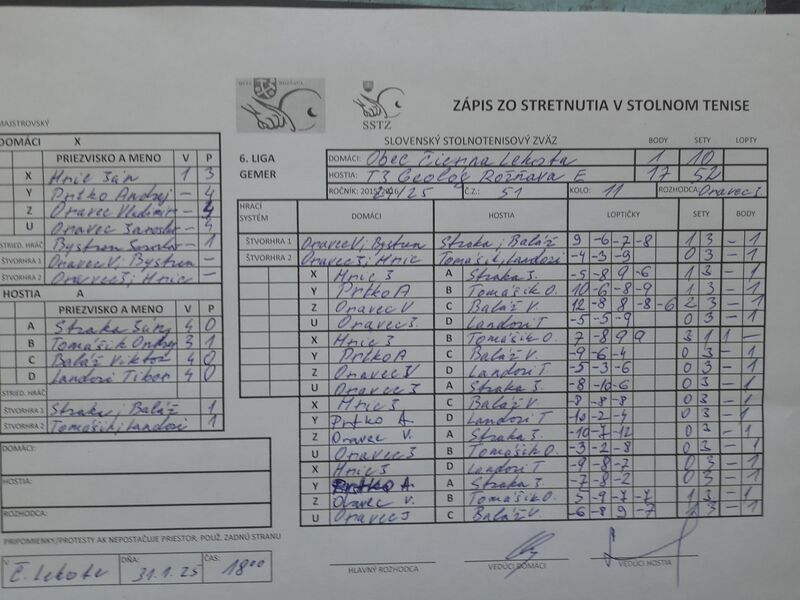 ZÁPIS ZO STRETNUTIA V STOLNOM TENISE
SSTZ
MAJSTROVSKÝ
SLOVENSKÝ STOLNOTENISOVÝ ZVÄZ BODY SETY LOPTY
6. LIGA
GEMER
DOMÁCI: Obec Čierna Lehota 1 10
HOSTIA: TJ Geológ Rožňava E 17 52
ROČNÍK: 24/25 Č.Z.: 51 KOLO: 11 ROZHODCA: Oravec J.
DOMÁCI X
PRIEZVISKO A MENO V P
X Hric Ján 1 3
Y Prtko Andrej – 4
Z Oravec Vladimír – 4
U Oravec Jaroslav – 4
STRIED. HRÁČ Bystran – 1
ŠTVORHRA 1 Oravec V, Bystran –
ŠTVORHRA 2 Oravec J, Hric –
HOSTIA A
PRIEZVISKO A MENO V P
A Straka Ján 4 0
B Tomášik Ondrej 3 1
C Baláž Viktor 4 0
D Landori Tibor 4 0
STRIED. HRÁČ
ŠTVORHRA 1 Straka, Baláž 1
ŠTVORHRA 2 Tomášik, Landori 1
DOMÁCI:
HOSTIA:
ROZHODCA:
PRIPOMIENKY/PROTESTY AK NEPOSTAČUJE PRIESTOR, POUŽ. ZADNÚ STRANU
V Č. Lehote DŇA: 31.1.25 ČAS: 18 00
HRACÍ SYSTÉM DOMÁCI HOSTIA LOPTIČKY SETY BODY
ŠTVORHRA 1 Oravec V, Bystran Straka, Baláž 9 -6 -7 -8 1 3 – 1
ŠTVORHRA 2 Oravec J, Hric Tomášik, Landori -4 -3 -9 0 3 – 1
X Hric J A Straka J. -5 -8 9 -6 1 3 – 1
Y Prtko A B Tomášik O. 10 -6 -8 -9 1 3 – 1
Z Oravec V C Baláž V. 12 -8 8 -8 -6 2 3 – 1
U Oravec J. D Landori T -5 -5 -9 0 3 – 1
X Hric J B Tomášik O. 7 -8 9 9 3 1 1 –
Y Prtko A C Baláž V. -9 -6 -4 0 3 – 1
Z Oravec V D Landori T. -5 -3 -6 0 3 – 1
U Oravec J A Straka J. -8 -10 -6 0 3 – 1
X Hric J C Baláž V. -8 -8 -8 0 3 – 1
Y Prtko A D Landori T. -10 -2 -4 0 3 – 1
Z Oravec V. A Straka J. -10 -7 -12 0 3 – 1
U Oravec J B Tomášik O. -3 -2 -8 0 3 – 1
X Hric J D Landori T -9 -8 -2 0 3 – 1
Y Prtko A. A Straka J. -7 -8 -2 0 3 – 1
Z Oravec V. B Tomášik O. 5 -9 -7 -7 1 3 – 1
U Oravec J C Baláž V. -6 -8 9 -7 1 3 – 1
HLAVNÝ ROZHODCA VEDÚCI DOMÁCI VEDÚCI HOSTIA